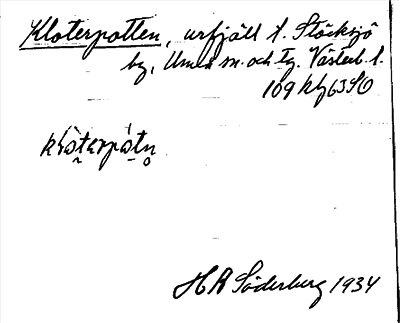 Kloterpotten, urfjäll t. Stöcksjö
by, Umeå sn. och tg. Västerb. l.
109 kh 63 SO
klòterpátn̥
H R Söderberg 1934